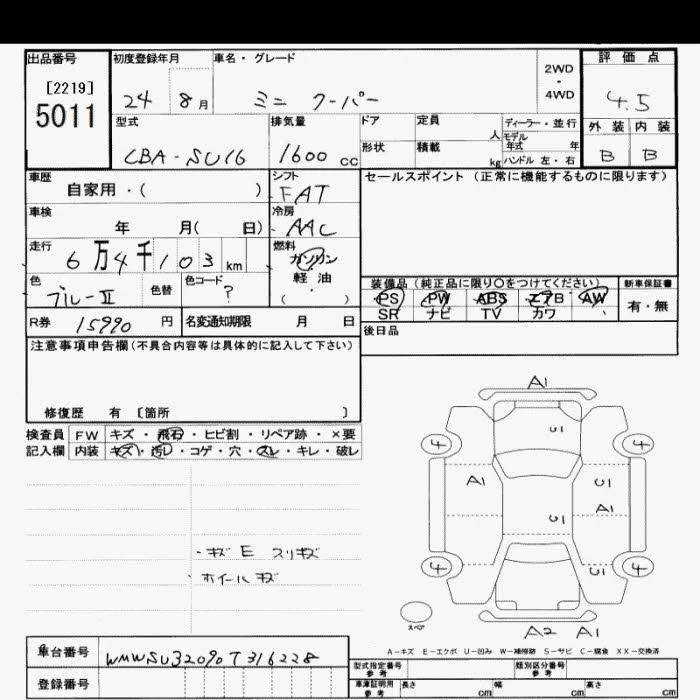 出品番号 初度登録年月 車名・グレード 2WD・4WD 評価点
[2219]
5011
24 8月 ミニ クーパー 4.5
型式 排気量 ドア 定員 人 ディーラー・並行 外装 内装
モデル年式 年
CBA-SU16 1600cc 形状 積載 kg ハンドル 左・右 B B
車歴 シフト セールスポイント (正常に機能するものに限ります)
自家用・( ) FAT
車検 冷房
年 月( 日) AAC
走行 燃料
6万4千103km ガソリン
軽油
( )
色 色替 色コード
ブルーII ?
装備品 (純正品に限り○をつけてください) 新車保証書
PS PW ABS エアB AW 有・無
SR ナビ TV カワ
R券 15990円 名変通知期限 月 日
後日品
注意事項申告欄 (不具合内容等は具体的に記入して下さい)
修復歴 有 [箇所 ]
検査員 FW キズ・飛石・ヒビ割・リペア跡・×要
記入欄 内装 キズ・汚レ・コゲ・穴・スレ・キレ・破レ
・キズ E スリキズ
・ホイールキズ
A1
U1
4 4
A1 U1
A1
U1
4 U1 4
スペア
A2 A1
A-キズ E-エクボ U-凹み W-補修跡 S-サビ C-腐食 XX-交換済
車台番号 WMWSU32090T316228
登録番号
型式指定番号 参考 類別区分番号 参考
車庫証明用 参考 長さ cm 幅 cm 高さ cm